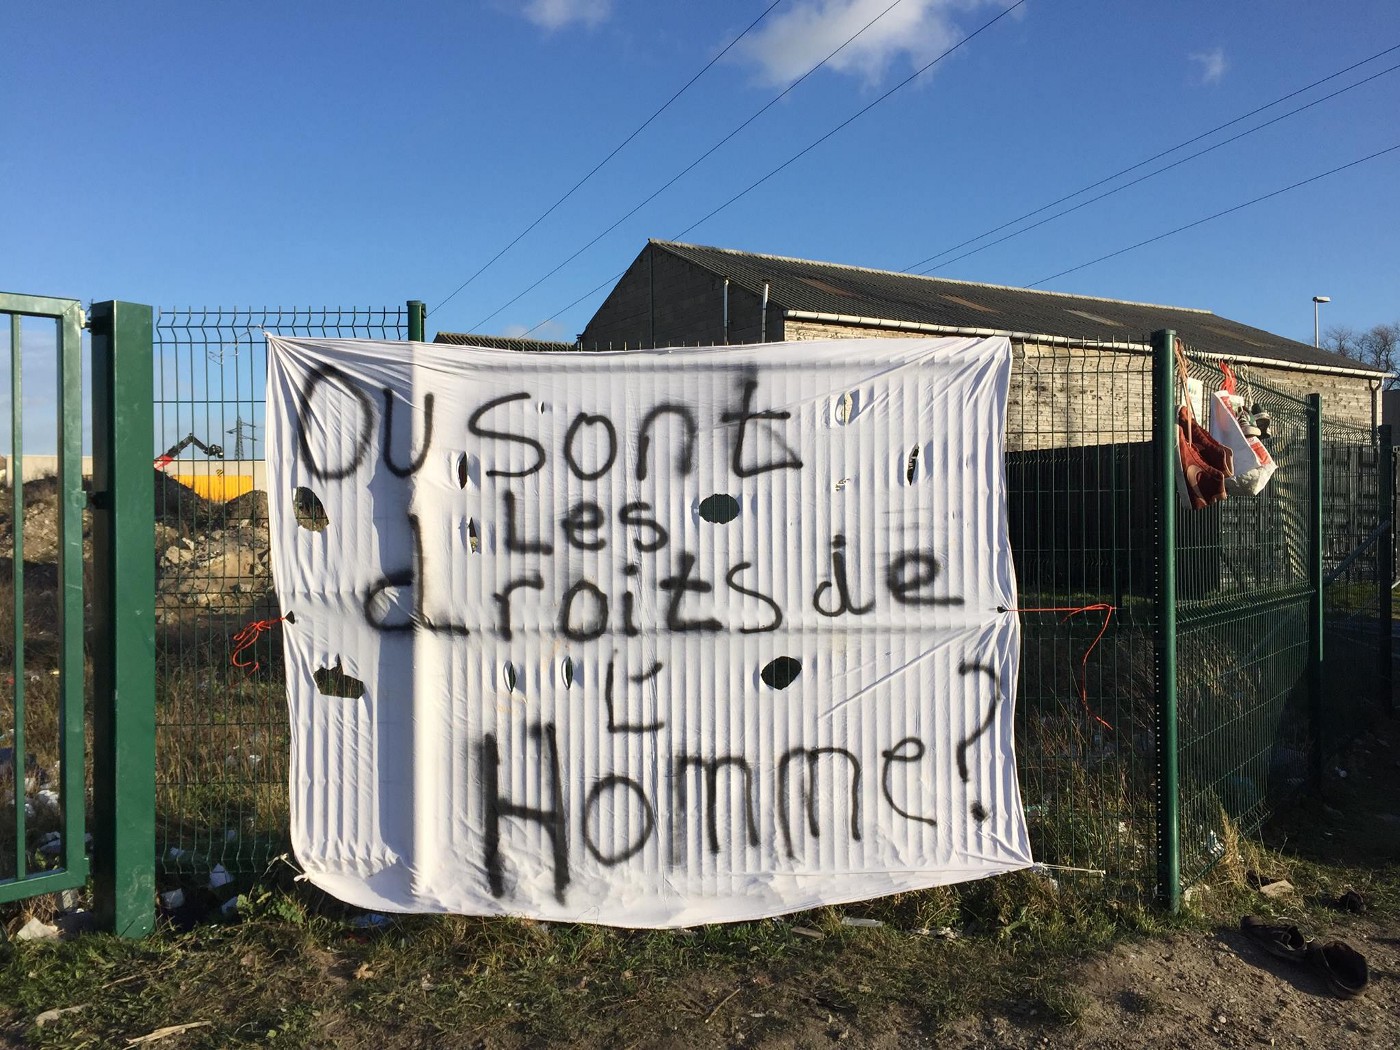 Ou sont
Les
droits de
L'
Homme?